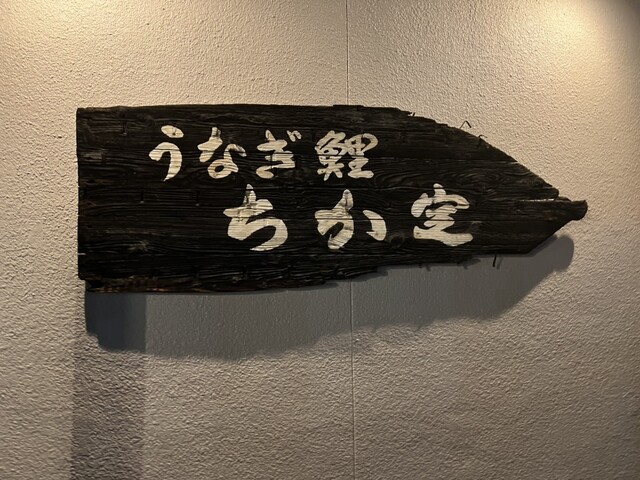 うなぎ鯉
ちか定